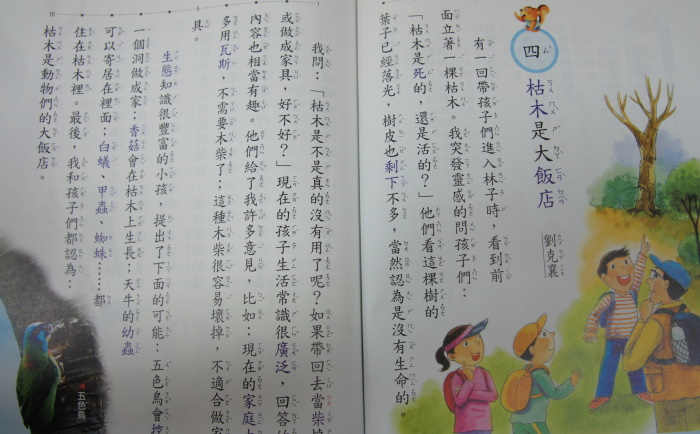 四
枯木是大飯店
劉克襄
有一回帶孩子們進入林子時，看到前
面立著一棵枯木。我突發靈感的問孩子們：
「枯木是死的，還是活的？」他們看這棵樹的
葉子已經落光，樹皮也剩下不多，當然認為是沒有生命的。
我問：「枯木是不是真的沒有用了呢？如果帶回去當柴燒
或做成家具，好不好？」現在的孩子生活常識很廣泛，回答的
內容也相當有趣。他們給了我許多意見，比如：現在的家庭
多用瓦斯，不需要木柴了；這種木柴很容易壞掉，不適合做家
具。
生態知識很豐富的小孩，提出了下面的可能：五色鳥會
一個洞做成家；香菇會在枯木上生長；天牛的幼蟲
可以寄居在裡面；白蟻、甲蟲、蜘蛛……都
住在枯木裡。最後，我和孩子們都認為：
枯木是動物們的大飯店。
五色鳥
10